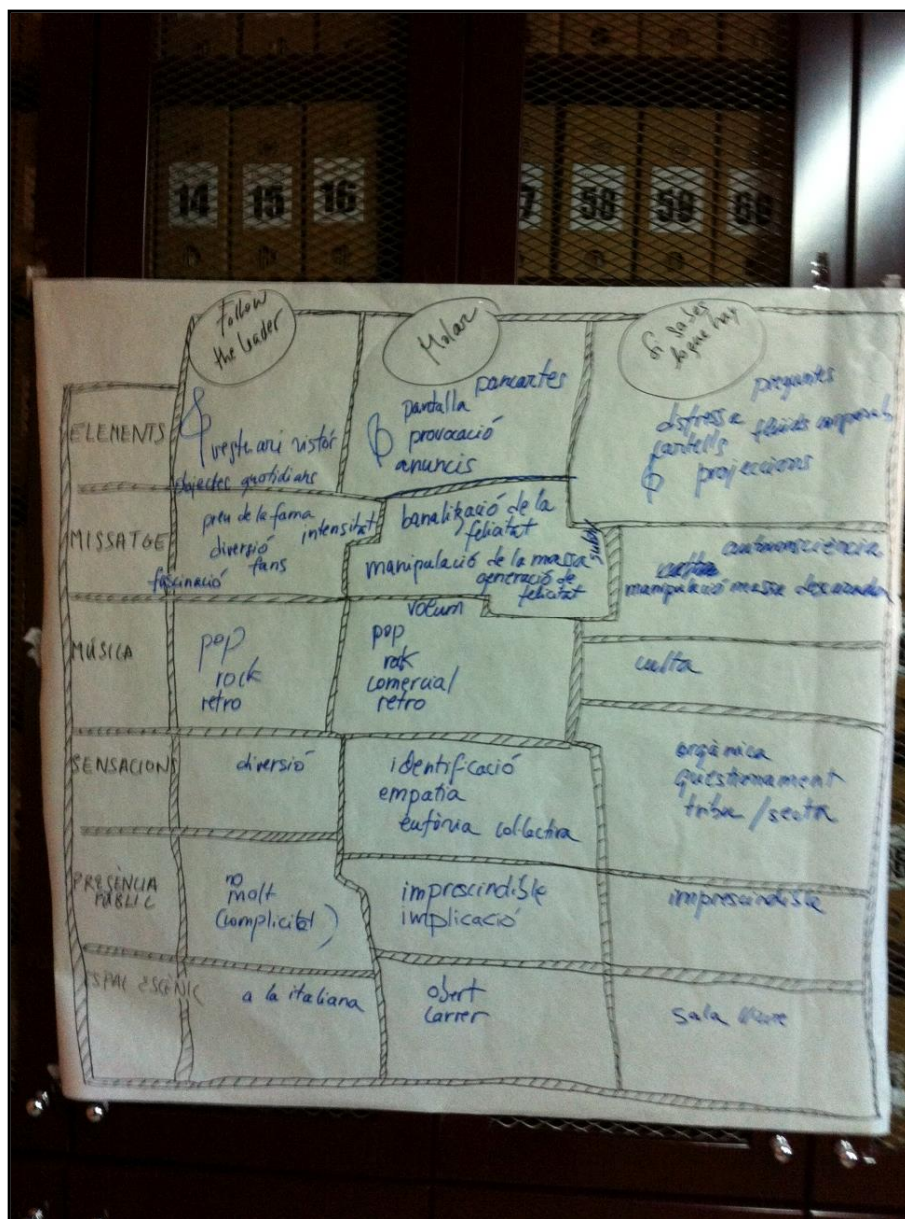 14 15 16
7 58 59 60
Follow
the leader
Molar
Si sabes
lo que hay
ELEMENTS
vestuari vistós
objectes quotidians
pancartes
pantalla
provocació
anuncis
preguntes
disfressa
fluids corporals
cartells
projeccions
MISSATGE
preu de la fama
intensitat
diversió
fans
fascinació
banalització de la
felicitat
manipulació de la massa
generació de
felicitat
autoconsciència
manipulació massa
MÚSICA
pop
rock
retro
volum
pop
rock
comercial
retro
culta
SENSACIONS
diversió
identificació
empatia
eufòria col·lectiva
orgànica
qüestionament
tribu / secta
PRESÈNCIA
PÚBLIC
no
molt
(complicitat)
imprescindible
implicació
imprescindible
ESPAI ESCÈNIC
a la italiana
obert
carrer
sala